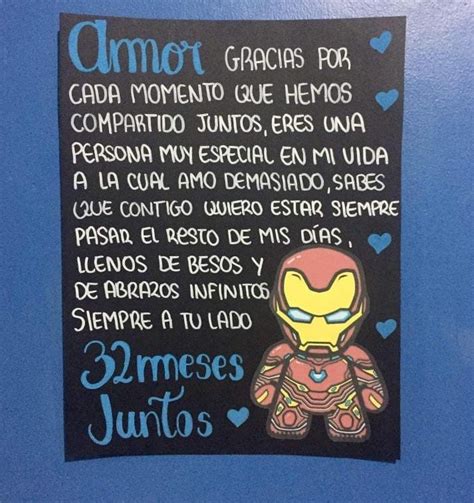 Amor GRACIAS POR
CADA MOMENTO QUE HEMOS
COMPARTIDO JUNTOS, ERES UNA
PERSONA MUY ESPECIAL EN MI VIDA
A LA CUAL AMO DEMASIADO, SABES
QUE CONTIGO QUIERO ESTAR SIEMPRE
PASAR EL RESTO DE MIS DÍAS,
LLENOS DE BESOS Y
DE ABRAZOS INFINITOS
SIEMPRE A TU LADO
32 meses
Juntos